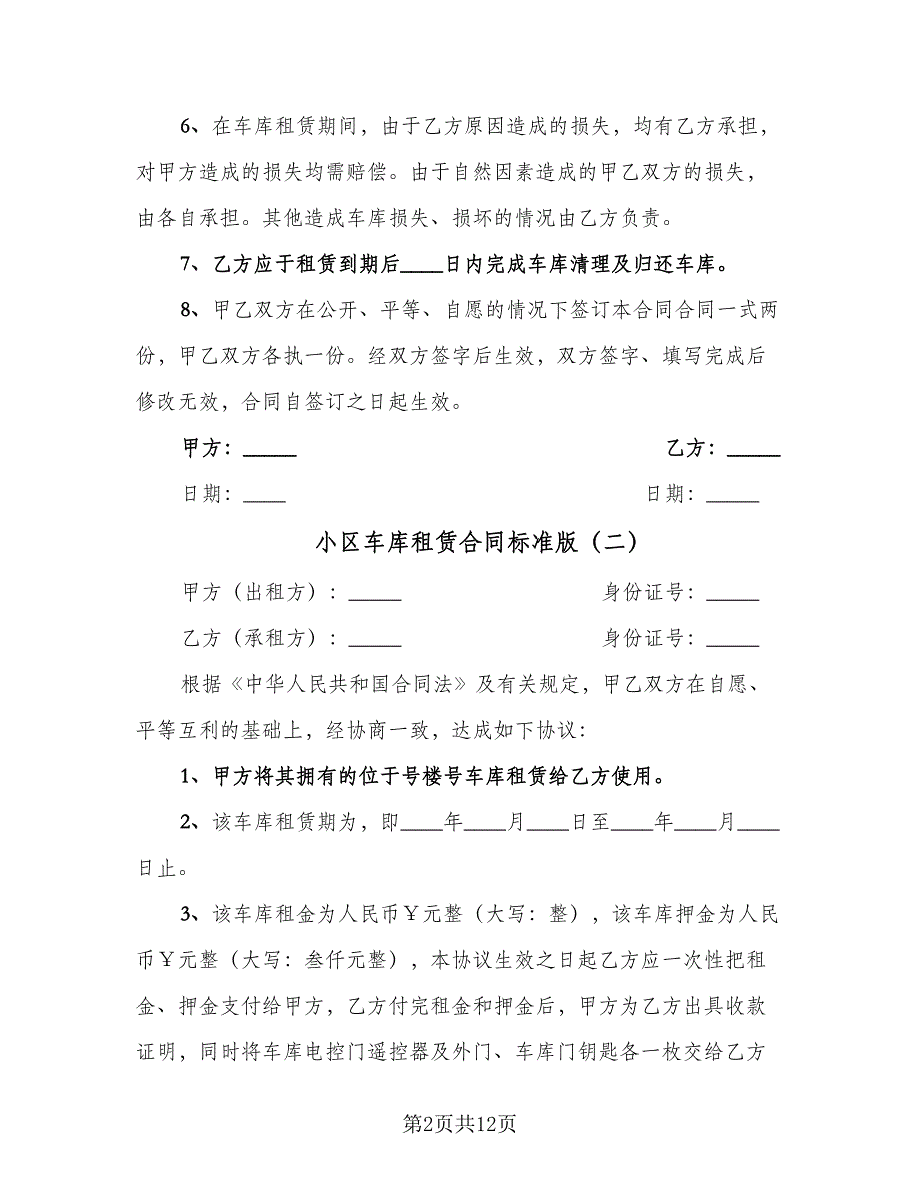 6、在车库租赁期间，由于乙方原因造成的损失，均有乙方承担，
对甲方造成的损失均需赔偿。由于自然因素造成的甲乙双方的损失，
由各自承担。其他造成车库损失、损坏的情况由乙方负责。
7、乙方应于租赁到期后____日内完成车库清理及归还车库。
8、甲乙双方在公开、平等、自愿的情况下签订本合同合同一式两
份，甲乙双方各执一份。经双方签字后生效，双方签字、填写完成后
修改无效，合同自签订之日起生效。
甲方：_____ 乙方：_____
日期：____ 日期：_____
小区车库租赁合同标准版（二）
甲方（出租方）：_____ 身份证号：_____
乙方（承租方）：_____ 身份证号：_____
根据《中华人民共和国合同法》及有关规定，甲乙双方在自愿、
平等互利的基础上，经协商一致，达成如下协议：
1、甲方将其拥有的位于号楼号车库租赁给乙方使用。
2、该车库租赁期为，即____年____月____日至____年____月____
日止。
3、该车库租金为人民币￥元整（大写：整），该车库押金为人民
币￥元整（大写：叁仟元整），本协议生效之日起乙方应一次性把租
金、押金支付给甲方，乙方付完租金和押金后，甲方为乙方出具收款
证明，同时将车库电控门遥控器及外门、车库门钥匙各一枚交给乙方
第2页共12页